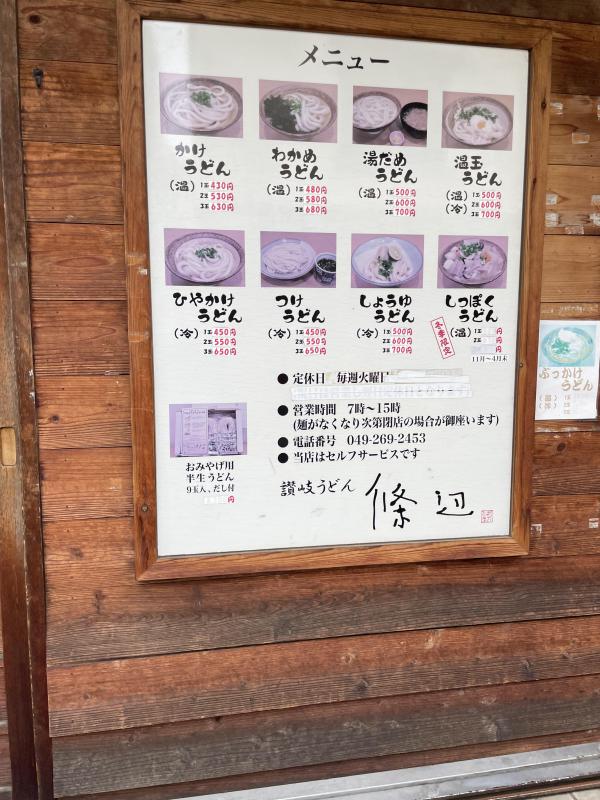 メニュー
かけ
うどん
(温) 1玉 430円
2玉 530円
3玉 630円
わかめ
うどん
(温) 1玉 480円
2玉 580円
3玉 680円
湯だめ
うどん
(温) 1玉 500円
2玉 600円
3玉 700円
温玉
うどん
(温) 1玉 500円
(冷) 2玉 600円
3玉 700円
ひやかけ
うどん
(冷) 1玉 450円
2玉 550円
3玉 650円
つけ
うどん
(冷) 1玉 450円
2玉 550円
3玉 650円
しょうゆ
うどん
(冷) 1玉 500円
2玉 600円
3玉 700円
冬季限定
しっぽく
うどん
(温) 1玉 円
2玉 円
3玉 円
11月〜4月末
ぶっかけ
うどん
おみやげ用
半生うどん
9玉入、だし付
円
● 定休日 毎週火曜日
● 営業時間 7時〜15時
(麺がなくなり次第閉店の場合が御座います)
● 電話番号 049-269-2453
● 当店はセルフサービスです
讃岐うどん 條辺